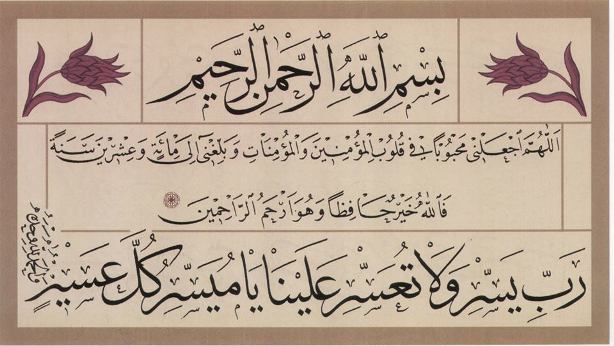 بِسْمِ اللهِ الرَّحْمٰنِ الرَّحِيمِ
اَللّٰهُمَّ اجْعَلْنِي مَحْبُوبًا فِي قُلُوبِ الْمُؤْمِنِينَ وَالْمُؤْمِنَاتِ وَبَلِّغْنِي اِلَى مِائَةٍ وَعِشْرِينَ سَنَةً
فَاللهُ خَيْرٌ حَافِظًا وَهُوَ اَرْحَمُ الرَّاحِمِينَ
رَبِّ يَسِّرْ وَلَا تُعَسِّرْ عَلَيْنَا يَا مُيَسِّرَ كُلِّ عَسِيرٍ